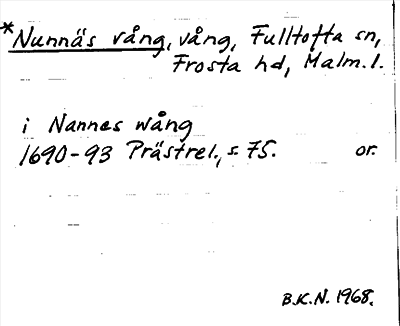 *Nunnäs vång, vång, Fulltofta sn,
Frosta hd, Malm. l.
i Nannes wång
1690-93 Prästrel., s. 75. or.
B.K.N. 1968.